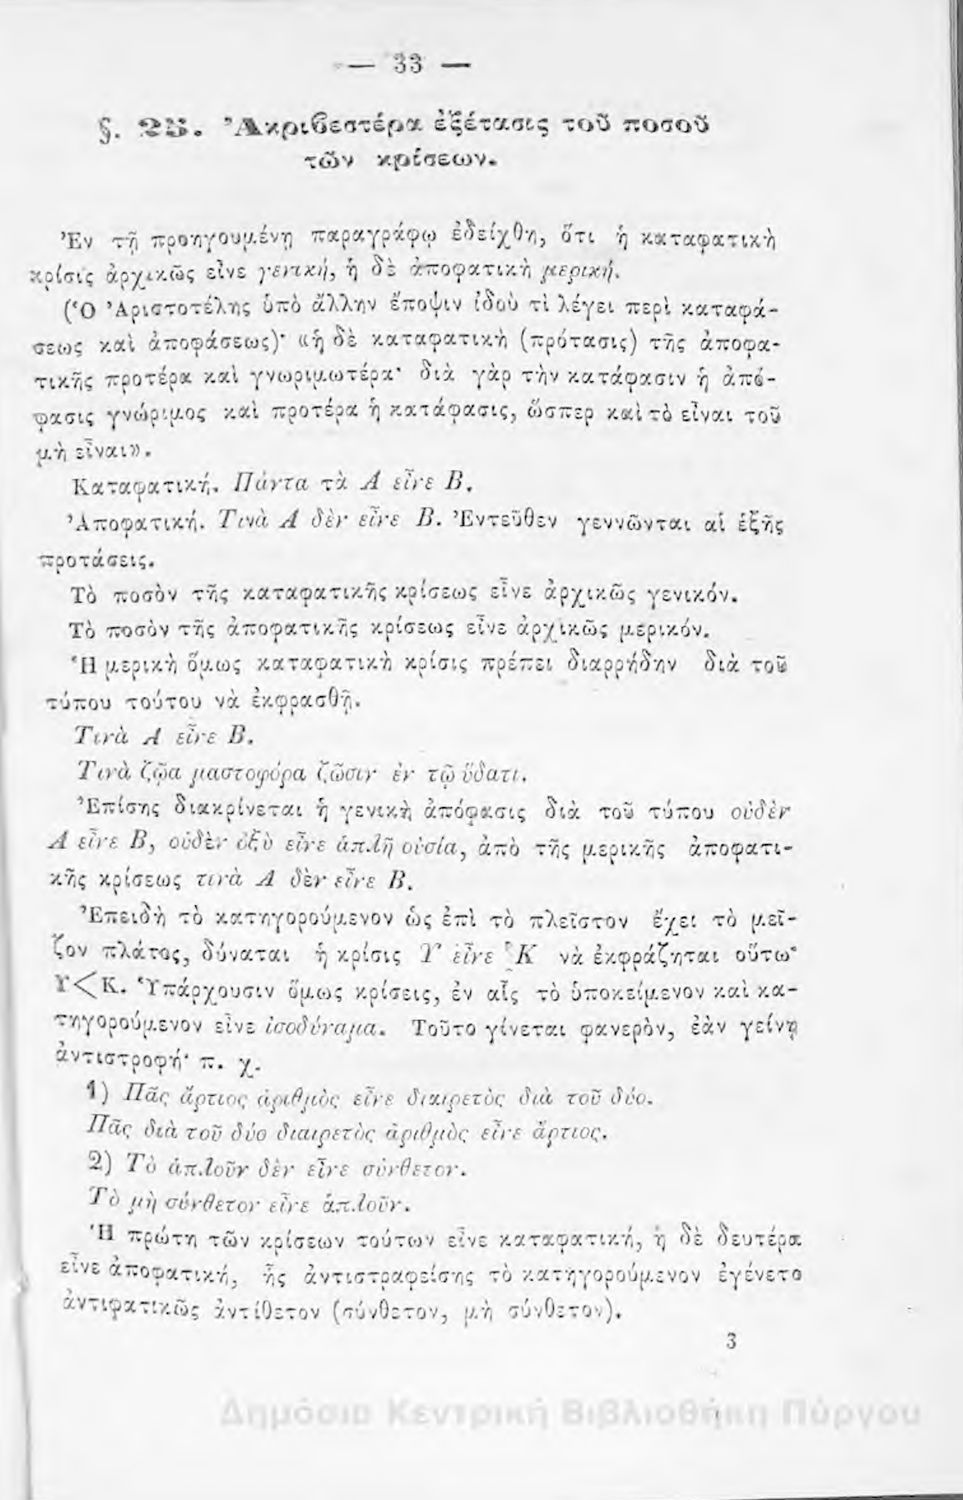 — 33 —
§. 25. Ἀκριβεστέρα ἐξέτασις τοῦ ποσοῦ
τῶν κρίσεων.
Ἐν τῇ προηγουμένῃ παραγράφῳ ἐδείχθη, ὅτι ἡ καταφατικὴ
κρίσις ἀρχικῶς εἶνε γενική, ἡ δὲ ἀποφατικὴ μερική.
(Ὁ Ἀριστοτέλης ὑπὸ ἄλλην ἔποψιν ἰδοὺ τὶ λέγει περὶ καταφά-
σεως καὶ ἀποφάσεως)· «ἡ δὲ καταφατικὴ (πρότασις) τῆς ἀποφα-
τικῆς προτέρα καὶ γνωριμωτέρα· διὰ γὰρ τὴν κατάφασιν ἡ ἀπό-
φασις γνώριμος καὶ προτέρα ἡ κατάφασις, ὥσπερ καὶ τὸ εἶναι τοῦ
μὴ εἶναι».
Καταφατική. Πάντα τὰ Α εἶνε Β.
Ἀποφατική. Τινὰ Α δὲν εἶνε Β. Ἐντεῦθεν γεννῶνται αἱ ἑξῆς
προτάσεις.
Τὸ ποσὸν τῆς καταφατικῆς κρίσεως εἶνε ἀρχικῶς γενικόν.
Τὸ ποσὸν τῆς ἀποφατικῆς κρίσεως εἶνε ἀρχικῶς μερικόν.
Ἡ μερικὴ ὅμως καταφατικὴ κρίσις πρέπει διαρρήδην διὰ τοῦ
τύπου τούτου νὰ ἐκφρασθῇ.
Τινὰ Α εἶνε Β.
Τινὰ ζῷα μαστοφόρα ζῶσιν ἐν τῷ ὕδατι.
Ἐπίσης διακρίνεται ἡ γενικὴ ἀπόφασις διὰ τοῦ τύπου οὐδὲν
Α εἶνε Β, οὐδὲν ὀξὺ εἶνε ἁπλῆ οὐσία, ἀπὸ τῆς μερικῆς ἀποφατι-
κῆς κρίσεως τινὰ Α δὲν εἶνε Β.
Ἐπειδὴ τὸ κατηγορούμενον ὡς ἐπὶ τὸ πλεῖστον ἔχει τὸ μεῖ-
ζον πλάτος, δύναται ἡ κρίσις Υ εἶνε Κ νὰ ἐκφράζηται οὕτω·
Υ<Κ. Ὑπάρχουσιν ὅμως κρίσεις, ἐν αἷς τὸ ὑποκείμενον καὶ κα-
τηγορούμενον εἶνε ἰσοδύναμα. Τοῦτο γίνεται φανερὸν, ἐὰν γείνῃ
ἀντιστροφή· π. χ.
1) Πᾶς ἄρτιος ἀριθμὸς εἶνε διαιρετὸς διὰ τοῦ δύο.
Πᾶς διὰ τοῦ δύο διαιρετὸς ἀριθμὸς εἶνε ἄρτιος.
2) Τὸ ἁπλοῦν δὲν εἶνε σύνθετον.
Τὸ μὴ σύνθετον εἶνε ἁπλοῦν.
Ἡ πρώτη τῶν κρίσεων τούτων εἶνε καταφατική, ἡ δὲ δευτέρα
εἶνε ἀποφατική, ἧς ἀντιστραφείσης τὸ κατηγορούμενον ἐγένετο
ἀντιφατικῶς ἀντίθετον (σύνθετον, μὴ σύνθετον).
3
Δημόσια Κεντρική Βιβλιοθήκη Πύργου